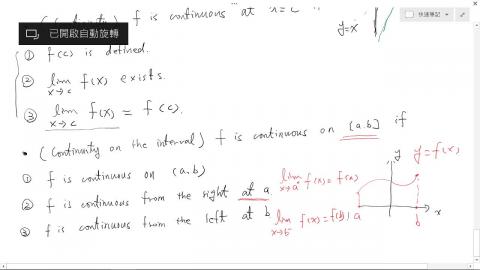 f is continuous at x=c
快速筆記
已開啟自動旋轉
y=x
① f(c) is defined.
② lim x→c f(x) exists.
③ lim x→c f(x) = f(c).
• (Continuity on the interval) f is continuous on [a.b] if
① f is continuous on (a.b)
② f is continuous from the right at a.
lim x→a⁺ f(x) = f(a)
③ f is continuous from the left at b
lim x→b⁻ f(x) = f(b)
y
y=f(x)
a
b
x